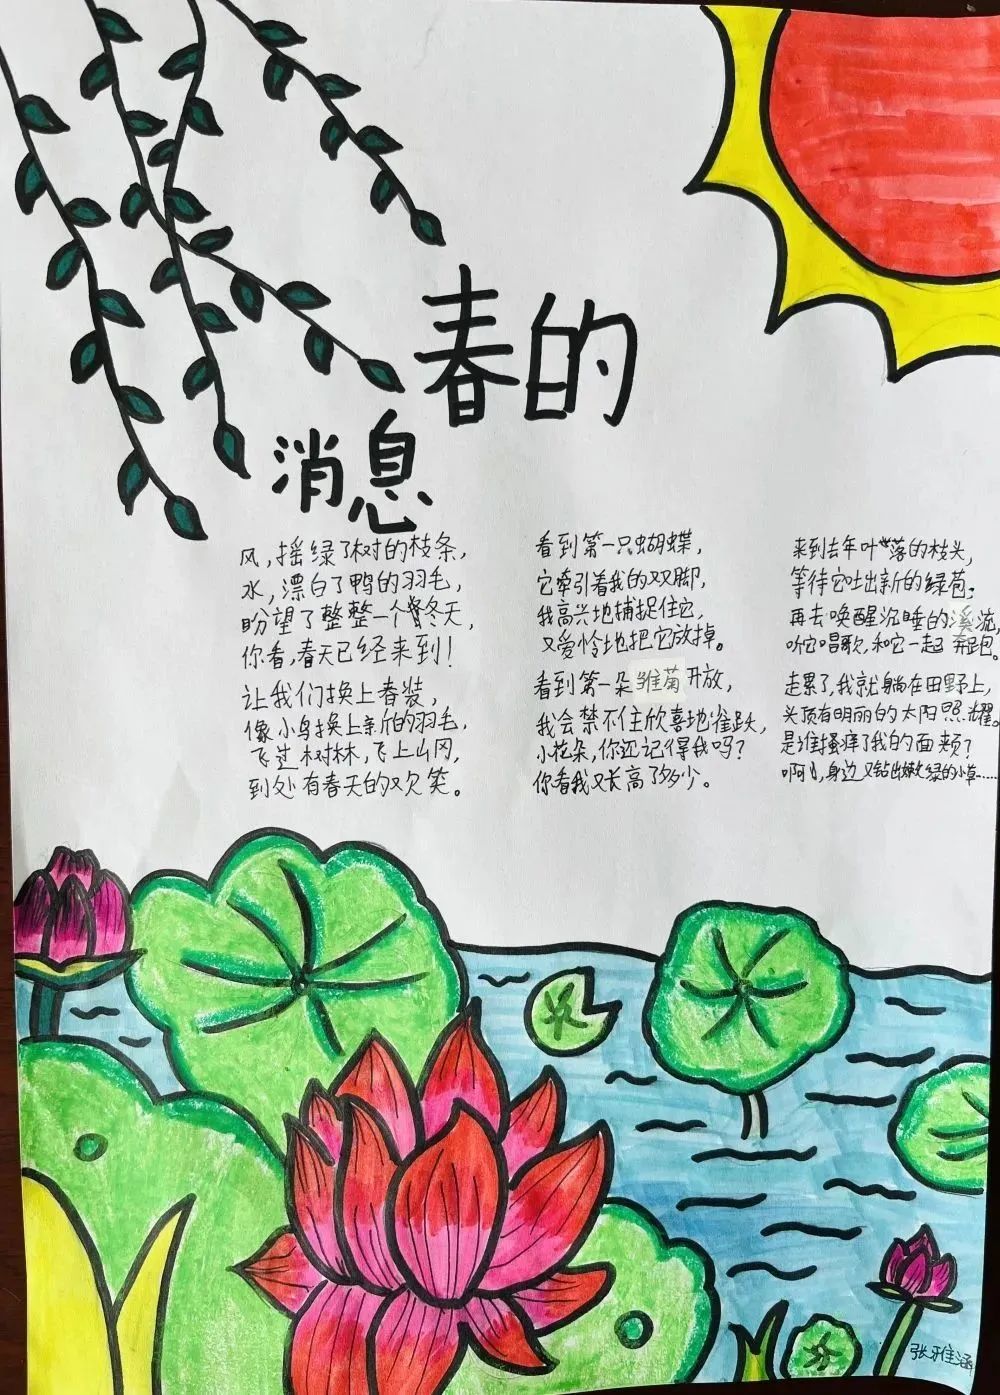 春的
消息
风,摇绿了树的枝条,
水,漂白了鸭的羽毛,
盼望了整整一个冬天,
你看,春天已经来到!
让我们换上春装,
像小鸟换上新的羽毛,
飞过树林,飞上山冈,
到处有春天的欢笑。
看到第一只蝴蝶,
它牵引着我的双脚,
我高兴地捕捉住它,
又爱怜地把它放掉。
看到第一朵雏菊开放,
我会禁不住欣喜地雀跃,
小花朵,你还记得我吗?
你看我又长高了多少。
来到去年叶落的枝头,
等待它吐出新的绿苞;
再去唤醒沉睡的溪流,
听它唱歌,和它一起奔跑。
走累了,我就躺在田野上,
头顶有明丽的太阳照耀。
是谁搔痒了我的面颊?
啊,身边又钻出嫩绿的小草……
张雅涵